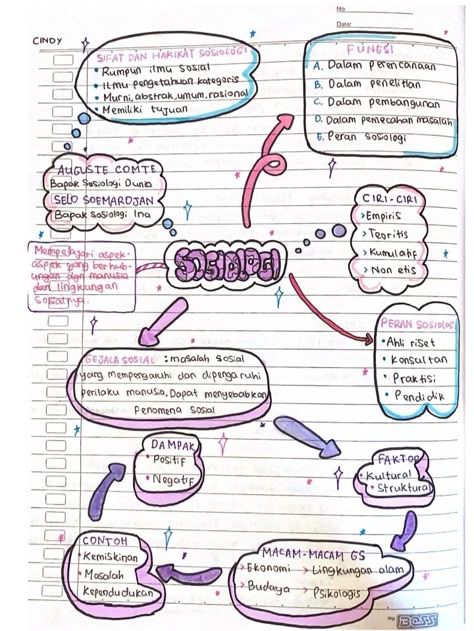 No.
Date:
CINDY
SIFAT DAN HAKIKAT SOSIOLOGI
• Rumpun ilmu sosial
• Ilmu pengetahuan kategoris
• Murni, abstrak, umum, rasional
• Memiliki tujuan
FUNGSI
A. Dalam perencanaan
B. Dalam penelitian
C. Dalam pembangunan
D. Dalam pemecahan masalah
E. Peran sosiologi
AUGUSTE COMTE
Bapak Sosiologi Dunia
SELO SOEMARDJAN
Bapak Sosiologi Ina
CIRI-CIRI
> Empiris
> Teoritis
> Kumulatif
> Non etis
Mempelajari aspek-
aspek yang berhub-
ungan dgn manusia
dan lingkungan
sosialnya.
SOSIOLOGI
PERAN SOSIOLOGI
• Ahli riset
• Konsultan
• Praktisi
• Pendidik
GEJALA SOSIAL : masalah sosial
yang mempengaruhi dan dipengaruhi
perilaku manusia. Dapat menyebabkan
Fenomena sosial
DAMPAK
• Positif
• Negatif
FAKTOR
• Kultural
• Struktural
CONTOH
• Kemiskinan
• Masalah
Kependudukan
MACAM-MACAM GS
> Ekonomi > Lingkungan alam
> Budaya > Psikologis
BOSS